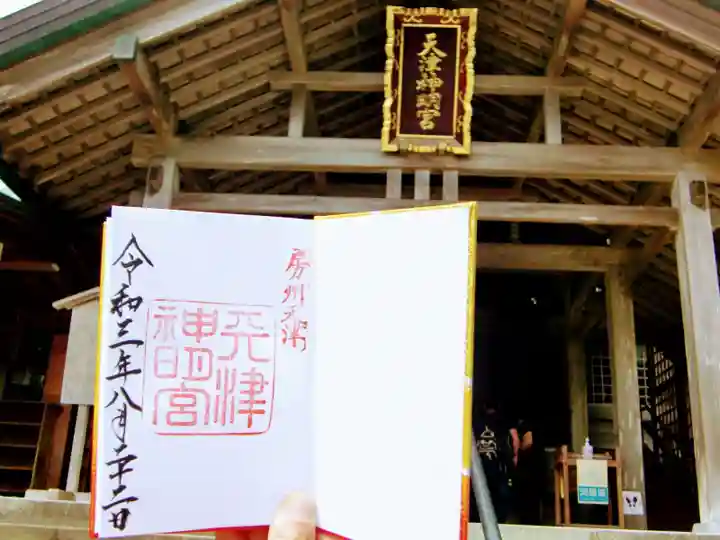 天津神明宮
房州天津
天津
神明宮
令和三年八月二十二日